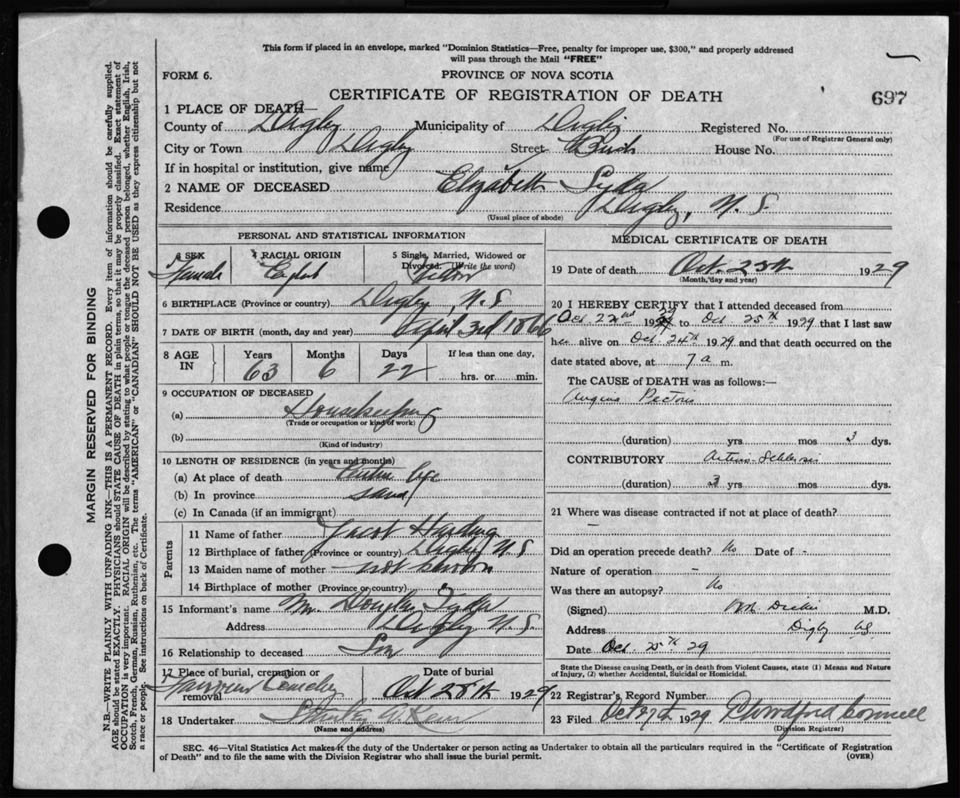 This form if placed in an envelope, marked "Dominion Statistics—Free, penalty for improper use, $300," and properly addressed
will pass through the Mail "FREE"
FORM 6.
PROVINCE OF NOVA SCOTIA
CERTIFICATE OF REGISTRATION OF DEATH
697
1 PLACE OF DEATH—
County of Digby Municipality of Digby Registered No.
(For use of Registrar General only)
City or Town Digby Street House No.
If in hospital or institution, give name
2 NAME OF DECEASED Elizabeth
Residence Digby, N.S
(Usual place of abode)
PERSONAL AND STATISTICAL INFORMATION
4 SEX Female
3 RACIAL ORIGIN
5 Single, Married, Widowed or Divorced. (Write the word)
6 BIRTHPLACE (Province or country) Digby N.S
7 DATE OF BIRTH (month, day and year) April 3rd 1866
8 AGE IN Years 63 Months 6 Days 22 If less than one day, hrs. or min.
9 OCCUPATION OF DECEASED
(a) Housekeeping
(Trade or occupation or kind of work)
(b)
(Kind of industry)
10 LENGTH OF RESIDENCE (in years and months)
(a) At place of death Entire life
(b) In province same
(c) In Canada (if an immigrant)
Parents
11 Name of father Harding
12 Birthplace of father (Province or country) Digby N.S
13 Maiden name of mother not known
14 Birthplace of mother (Province or country)
15 Informant's name Mr. Douglas
Address Digby N.S.
16 Relationship to deceased Son
17 Place of burial, cremation or removal
Date of burial Oct 28th 1929
18 Undertaker Stanley W.
(Name and address)
MEDICAL CERTIFICATE OF DEATH
19 Date of death Oct. 25th 1929
(Month, day and year)
20 I HEREBY CERTIFY that I attended deceased from
Oct 22nd 1929 to Oct 25th 1929 that I last saw
her alive on Oct. 24th 1929 and that death occurred on the
date stated above, at 7 a m.
The CAUSE of DEATH was as follows:—
Angina Pectoris
(duration) yrs mos 3 dys.
CONTRIBUTORY Arterio-Sclerosis
(duration) 3 yrs mos dys.
21 Where was disease contracted if not at place of death?
—
Did an operation precede death? No Date of -
Nature of operation -
Was there an autopsy? No
(Signed) M.D.
Address Digby NS
Date Oct. 25th 29
State the Disease causing Death, or in death from Violent Causes, state (1) Means and Nature
of Injury, (2) whether Accidental, Suicidal or Homicidal.
22 Registrar's Record Number
23 Filed Oct 27th 1929
(Division Registrar)
SEC. 46—Vital Statistics Act makes it the duty of the Undertaker or person acting as Undertaker to obtain all the particulars required in the "Certificate of Registration
of Death" and to file the same with the Division Registrar who shall issue the burial permit.
(OVER)
MARGIN RESERVED FOR BINDING
N.B.—WRITE PLAINLY WITH UNFADING INK—THIS IS A PERMANENT RECORD. Every item of information should be carefully supplied.
AGE should be stated EXACTLY. PHYSICIANS should STATE CAUSE OF DEATH in plain terms, so that it may be properly classified. Exact statement of
OCCUPATION is very important. RACIAL ORIGIN will be described by stating to what people or tongue the deceased person belonged, whether English, Irish,
Scotch, French, German, Russian, Ruthenian, etc. The terms "AMERICAN" or "CANADIAN" SHOULD NOT BE USED as they express citizenship but not
a race or people. See instructions on back of Certificate.